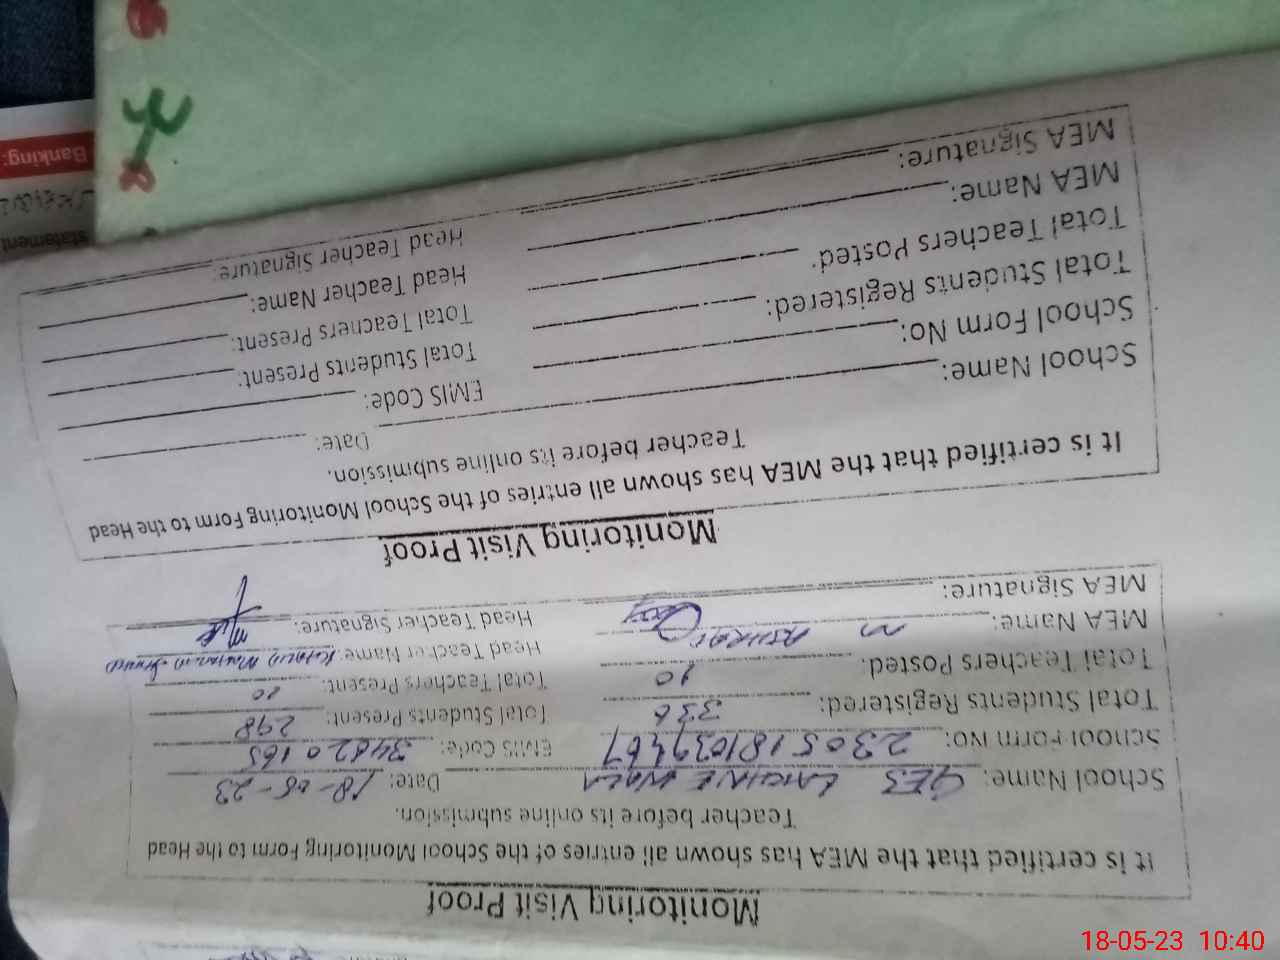 Monitoring Visit Proof
It is certified that the MEA has shown all entries of the School Monitoring Form to the Head
Teacher before its online submission.
School Name: GES Date: 18-05-23
School Form No: EMIS Code: 34820165
Total Students Registered: 336 Total Students Present: 298
Total Teachers Posted: 10 Total Teachers Present: 10
MEA Name: M ASHRAF Head Teacher Name:
MEA Signature: Head Teacher Signature:
Monitoring Visit Proof
It is certified that the MEA has shown all entries of the School Monitoring Form to the Head
Teacher before its online submission.
School Name: Date:
School Form No: EMIS Code:
Total Students Registered: Total Students Present:
Total Teachers Posted: Total Teachers Present:
MEA Name: Head Teacher Name:
MEA Signature: Head Teacher Signature:
statement
Banking:
18-05-23 10:40